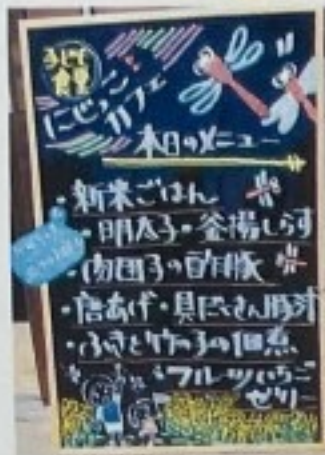 食堂
にじっこ
カフェ
本日のメニュー
・新米ごはん
・明太子・釜揚しらす
・肉団子の酢豚
・唐あげ・具だくさん豚汁
・ふきと竹の子の佃煮
・フルーツいちご
ゼリー